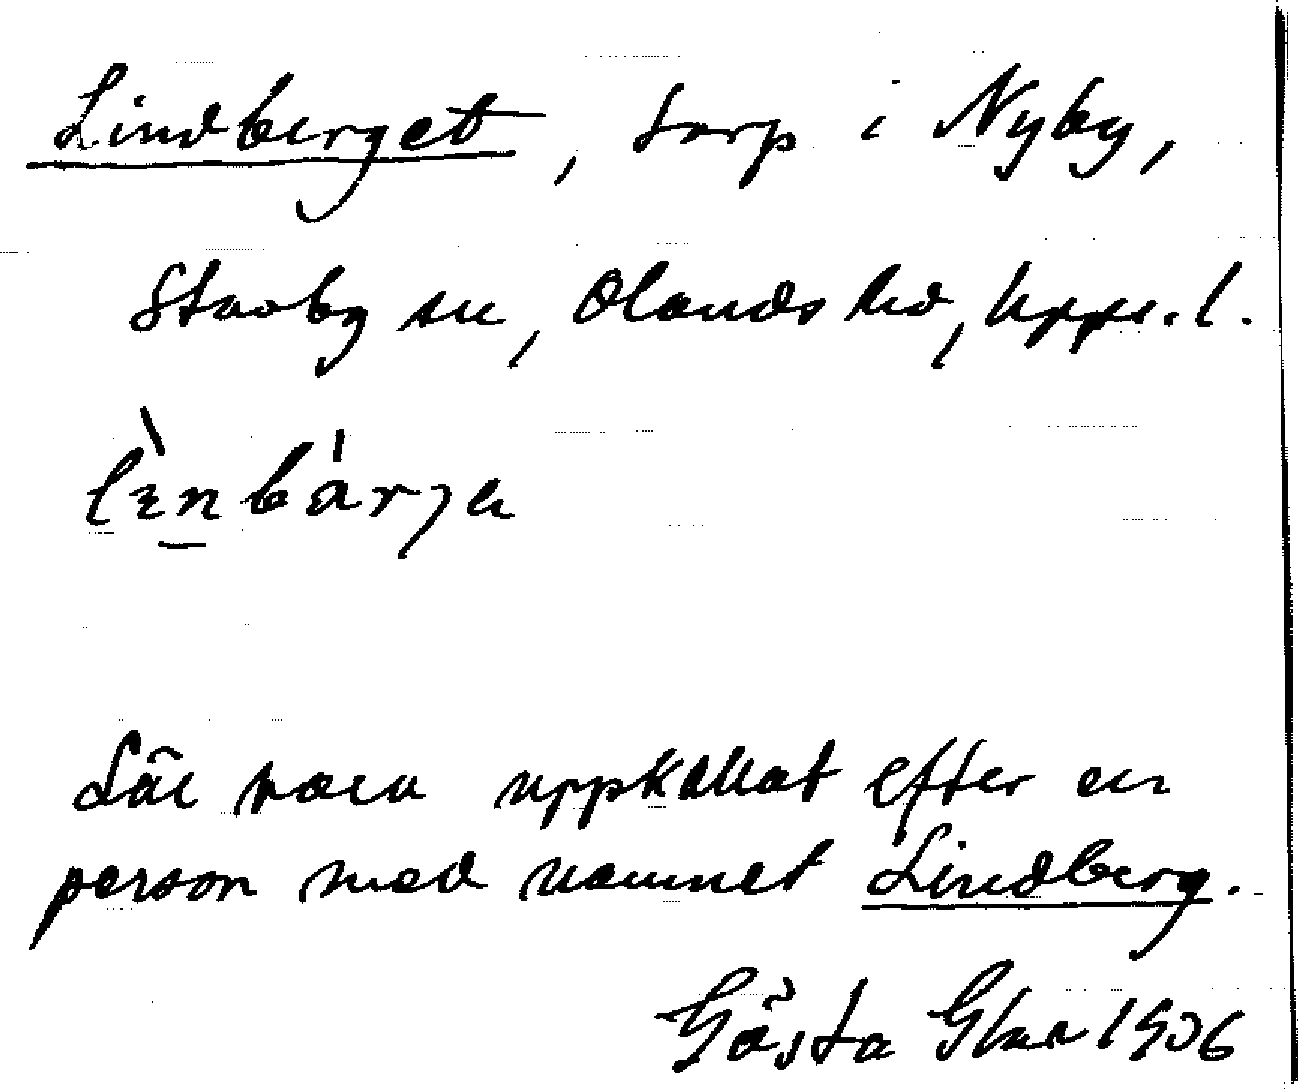 Lindberget, torp i Nyby,
Stavby sn, Olands hd, Upps. l.
Lär vara uppkallat efter en
person med namnet Lindberg.
Gösta 1936